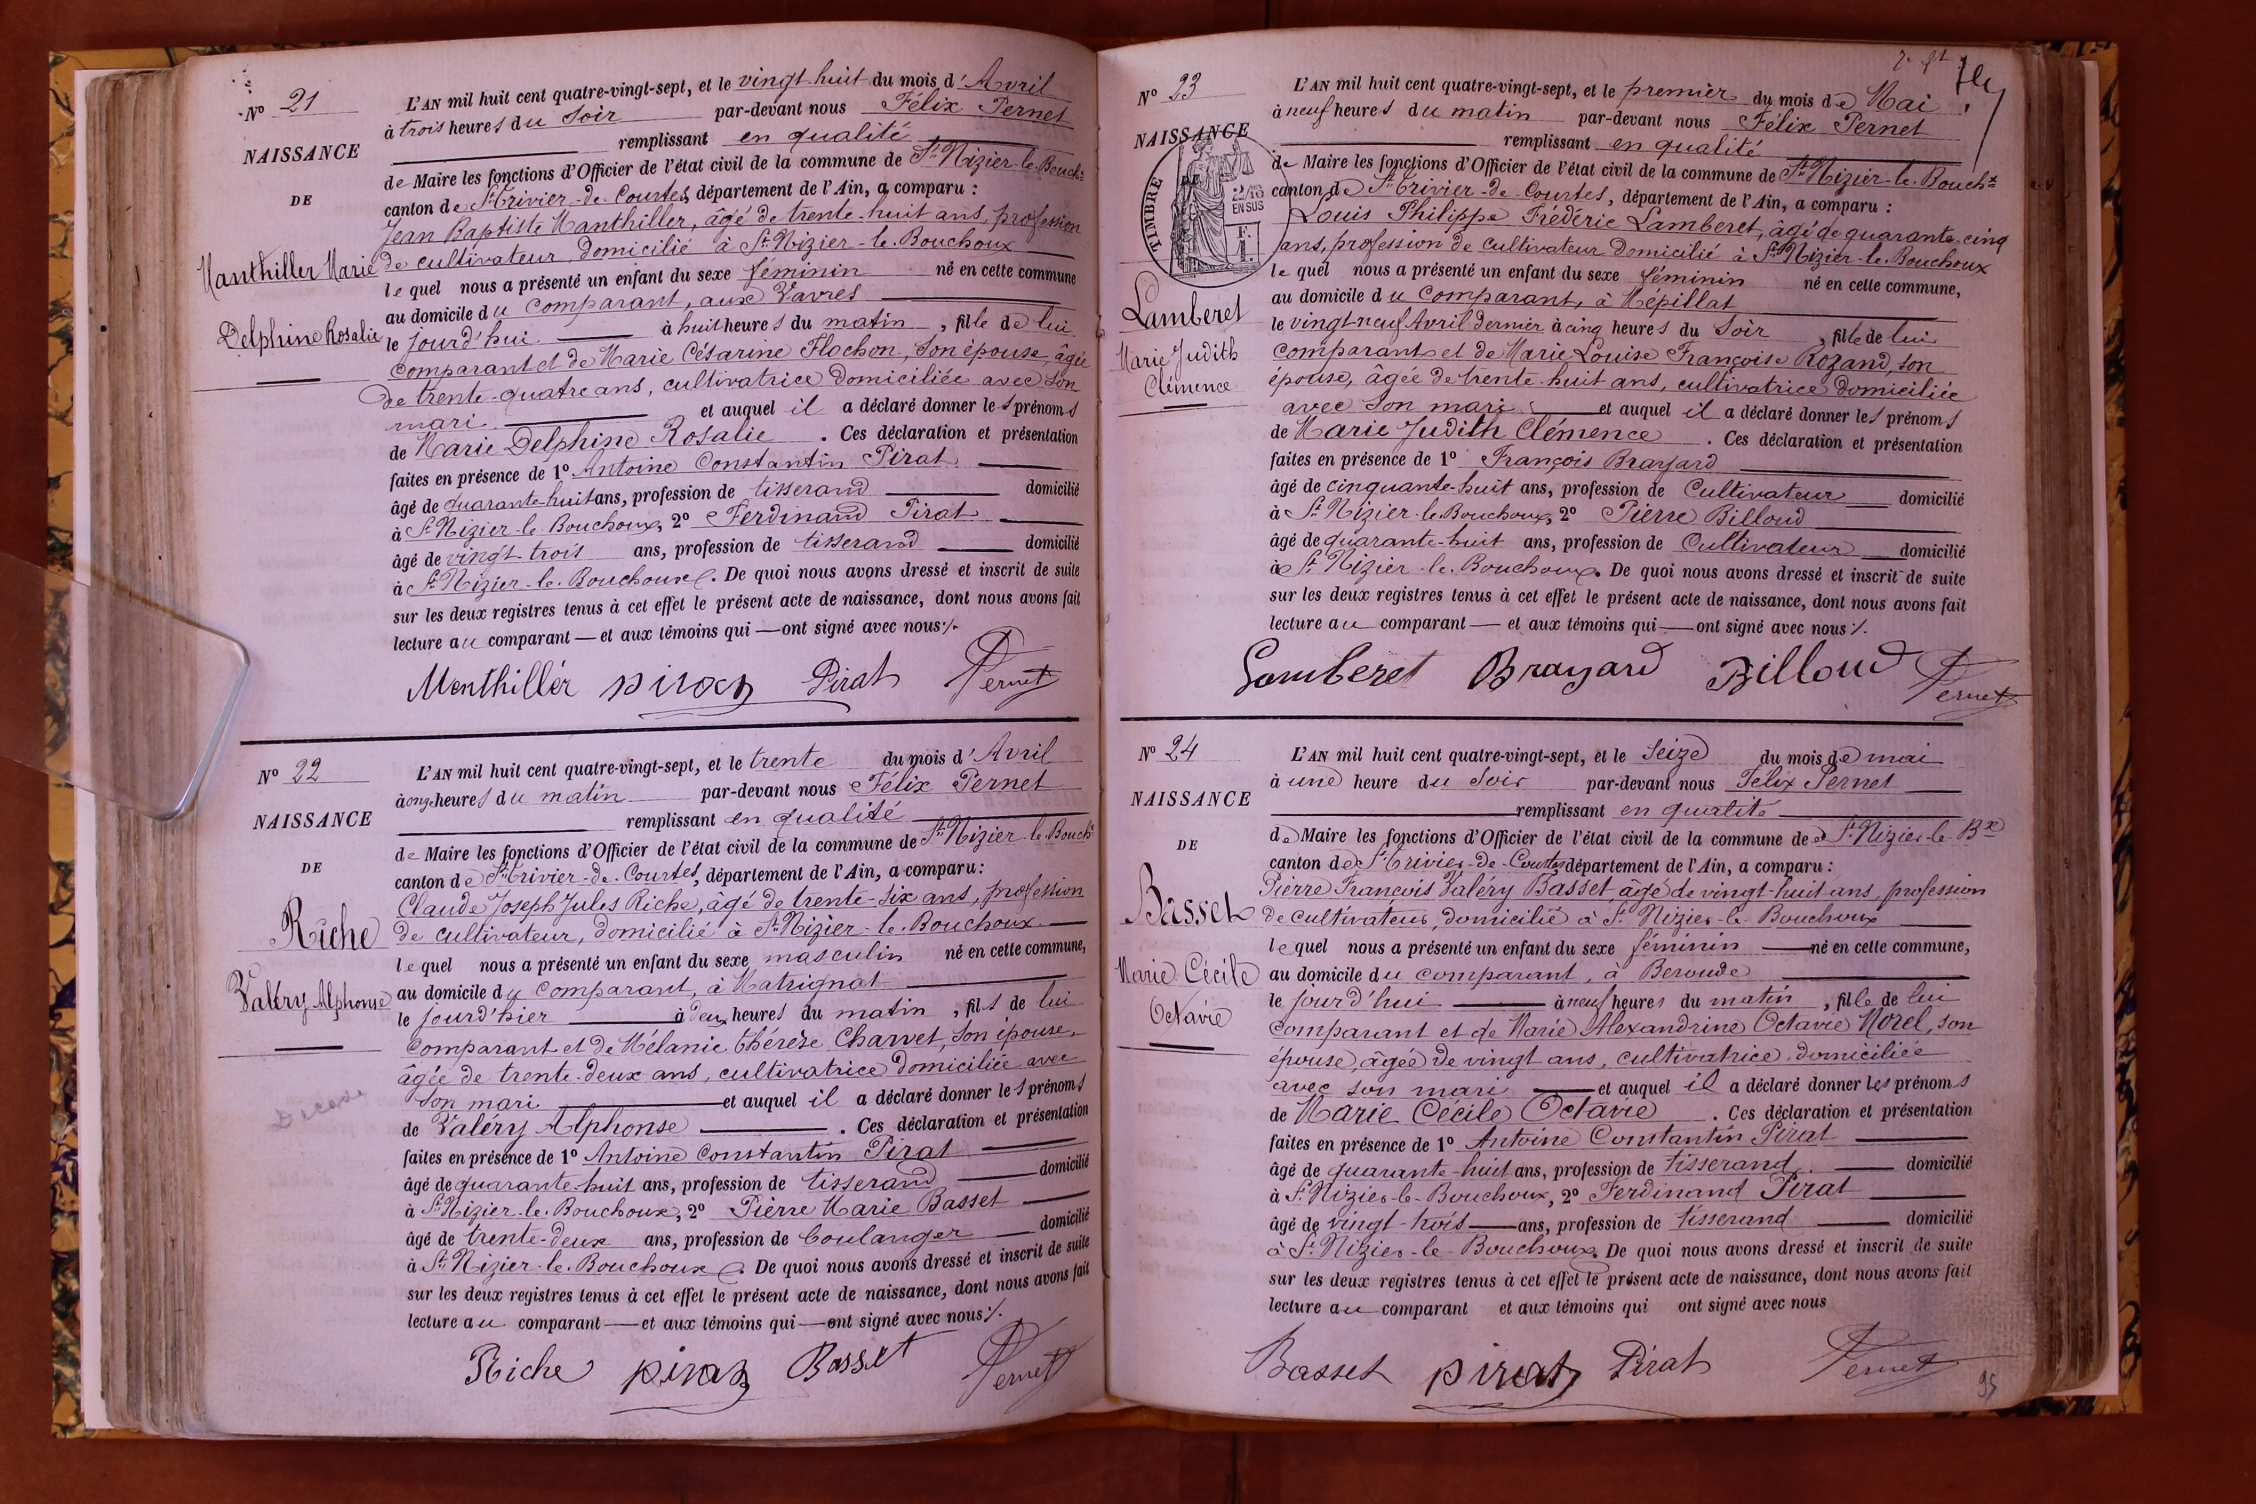 N° 21
NAISSANCE
DE
Manthiller Marie
Delphine Rosalie
L'AN mil huit cent quatre-vingt-sept, et le vingt-huit du mois d'Avril
à trois heures du soir par-devant nous Félix Pernet
remplissant en qualité
de Maire les fonctions d'Officier de l'état civil de la commune de St Nizier-le-Bouchx
canton de St Trivier-de-Courtes, département de l'Ain, a comparu :
Jean Baptiste Manthiller, âgé de trente-huit ans, profession
de cultivateur, domicilié à St Nizier-le-Bouchoux
lequel nous a présenté un enfant du sexe féminin né en cette commune
au domicile du comparant, aux Vavres
le jourd'hui à huit heures du matin, fille de lui
comparant et de Marie Césarine Flochon, son épouse, âgée
de trente-quatre ans, cultivatrice domiciliée avec son
mari et auquel il a déclaré donner les prénoms
de Marie Delphine Rosalie. Ces déclaration et présentation
faites en présence de 1° Antoine Constantin Pirat
âgé de quarante-huit ans, profession de tisserand domicilié
à St Nizier-le-Bouchoux, 2° Ferdinand Pirat
âgé de vingt trois ans, profession de tisserand domicilié
à St Nizier-le-Bouchoux. De quoi nous avons dressé et inscrit de suite
sur les deux registres tenus à cet effet le présent acte de naissance, dont nous avons fait
lecture au comparant — et aux témoins qui — ont signé avec nous ./.
Menthillér piraz Pirat Pernet
N° 22
NAISSANCE
DE
Riche
Valéry Alphonse
L'AN mil huit cent quatre-vingt-sept, et le trente du mois d'Avril
à onze heures du matin par-devant nous Félix Pernet
remplissant en qualité
de Maire les fonctions d'Officier de l'état civil de la commune de St Nizier-le-Bouchx
canton de St Trivier-de-Courtes, département de l'Ain, a comparu :
Claude Joseph Jules Riche, âgé de trente-six ans, profession
de cultivateur, domicilié à St Nizier-le-Bouchoux
lequel nous a présenté un enfant du sexe masculin né en cette commune,
au domicile du comparant, à Matrignat
le jourd'hier à deux heures du matin, fils de lui
comparant et de Mélanie Thérèse Charvet, son épouse,
âgée de trente-deux ans, cultivatrice domiciliée avec
son mari et auquel il a déclaré donner les prénoms
de Valéry Alphonse. Ces déclaration et présentation
faites en présence de 1° Antoine Constantin Pirat
âgé de quarante-huit ans, profession de tisserand domicilié
à St Nizier-le-Bouchoux, 2° Pierre Marie Basset
âgé de trente-deux ans, profession de boulanger domicilié
à St Nizier-le-Bouchoux. De quoi nous avons dressé et inscrit de suite
sur les deux registres tenus à cet effet le présent acte de naissance, dont nous avons fait
lecture au comparant — et aux témoins qui — ont signé avec nous ./.
Riche piraz Basset Pernet
N° 23
NAISSANCE
TIMBRE
2/10 EN SUS
Lamberet
Marie Judith
Clémence
L'AN mil huit cent quatre-vingt-sept, et le premier du mois de Mai
à neuf heures du matin par-devant nous Félix Pernet
remplissant en qualité
de Maire les fonctions d'Officier de l'état civil de la commune de St Nizier-le-Bouchx
canton de St Trivier-de-Courtes, département de l'Ain, a comparu :
Louis Philippe Frédéric Lamberet, âgé de quarante-cinq
ans, profession de cultivateur domicilié à St Nizier-le-Bouchoux
lequel nous a présenté un enfant du sexe féminin né en cette commune,
au domicile du comparant, à Mépillat
le vingt-neuf Avril dernier à cinq heures du soir, fille de lui
comparant et de Marie Louise Françoise Rozand, son
épouse, âgée de trente-huit ans, cultivatrice domiciliée
avec son mari et auquel il a déclaré donner les prénoms
de Marie Judith Clémence. Ces déclaration et présentation
faites en présence de 1° François Brayard
âgé de cinquante-huit ans, profession de Cultivateur domicilié
à St Nizier-le-Bouchoux, 2° Pierre Billoud
âgé de quarante-huit ans, profession de Cultivateur domicilié
à St Nizier-le-Bouchoux. De quoi nous avons dressé et inscrit de suite
sur les deux registres tenus à cet effet le présent acte de naissance, dont nous avons fait
lecture au comparant — et aux témoins qui — ont signé avec nous ./.
Lamberet Brayard Billoud Pernet
N° 24
NAISSANCE
DE
Basset
Marie Cécile
Octavie
L'AN mil huit cent quatre-vingt-sept, et le seize du mois de mai
à une heure du soir par-devant nous Felix Pernet
remplissant en qualité
de Maire les fonctions d'Officier de l'état civil de la commune de St Nizier-le-Bx
canton de St Trivier-de-Courtes département de l'Ain, a comparu :
Pierre Francois Valéry Basset, âgé de vingt-huit ans, profession
de cultivateur, domicilié à St Nizier-le-Bouchoux
lequel nous a présenté un enfant du sexe féminin né en cette commune,
au domicile du comparant, à Beroude
le jourd'hui à neuf heures du matin, fille de lui
comparant et de Marie Alexandrine Octavie Morel, son
épouse, âgée de vingt ans, cultivatrice, domiciliée
avec son mari et auquel il a déclaré donner les prénoms
de Marie Cécile Octavie. Ces déclaration et présentation
faites en présence de 1° Antoine Constantin Pirat
âgé de quarante-huit ans, profession de tisserand domicilié
à St Nizier-le-Bouchoux, 2° Ferdinand Pirat
âgé de vingt-trois ans, profession de tisserand domicilié
à St Nizier-le-Bouchoux. De quoi nous avons dressé et inscrit de suite
sur les deux registres tenus à cet effet le présent acte de naissance, dont nous avons fait
lecture au comparant et aux témoins qui ont signé avec nous
Basset piratz Pirat Pernet
95